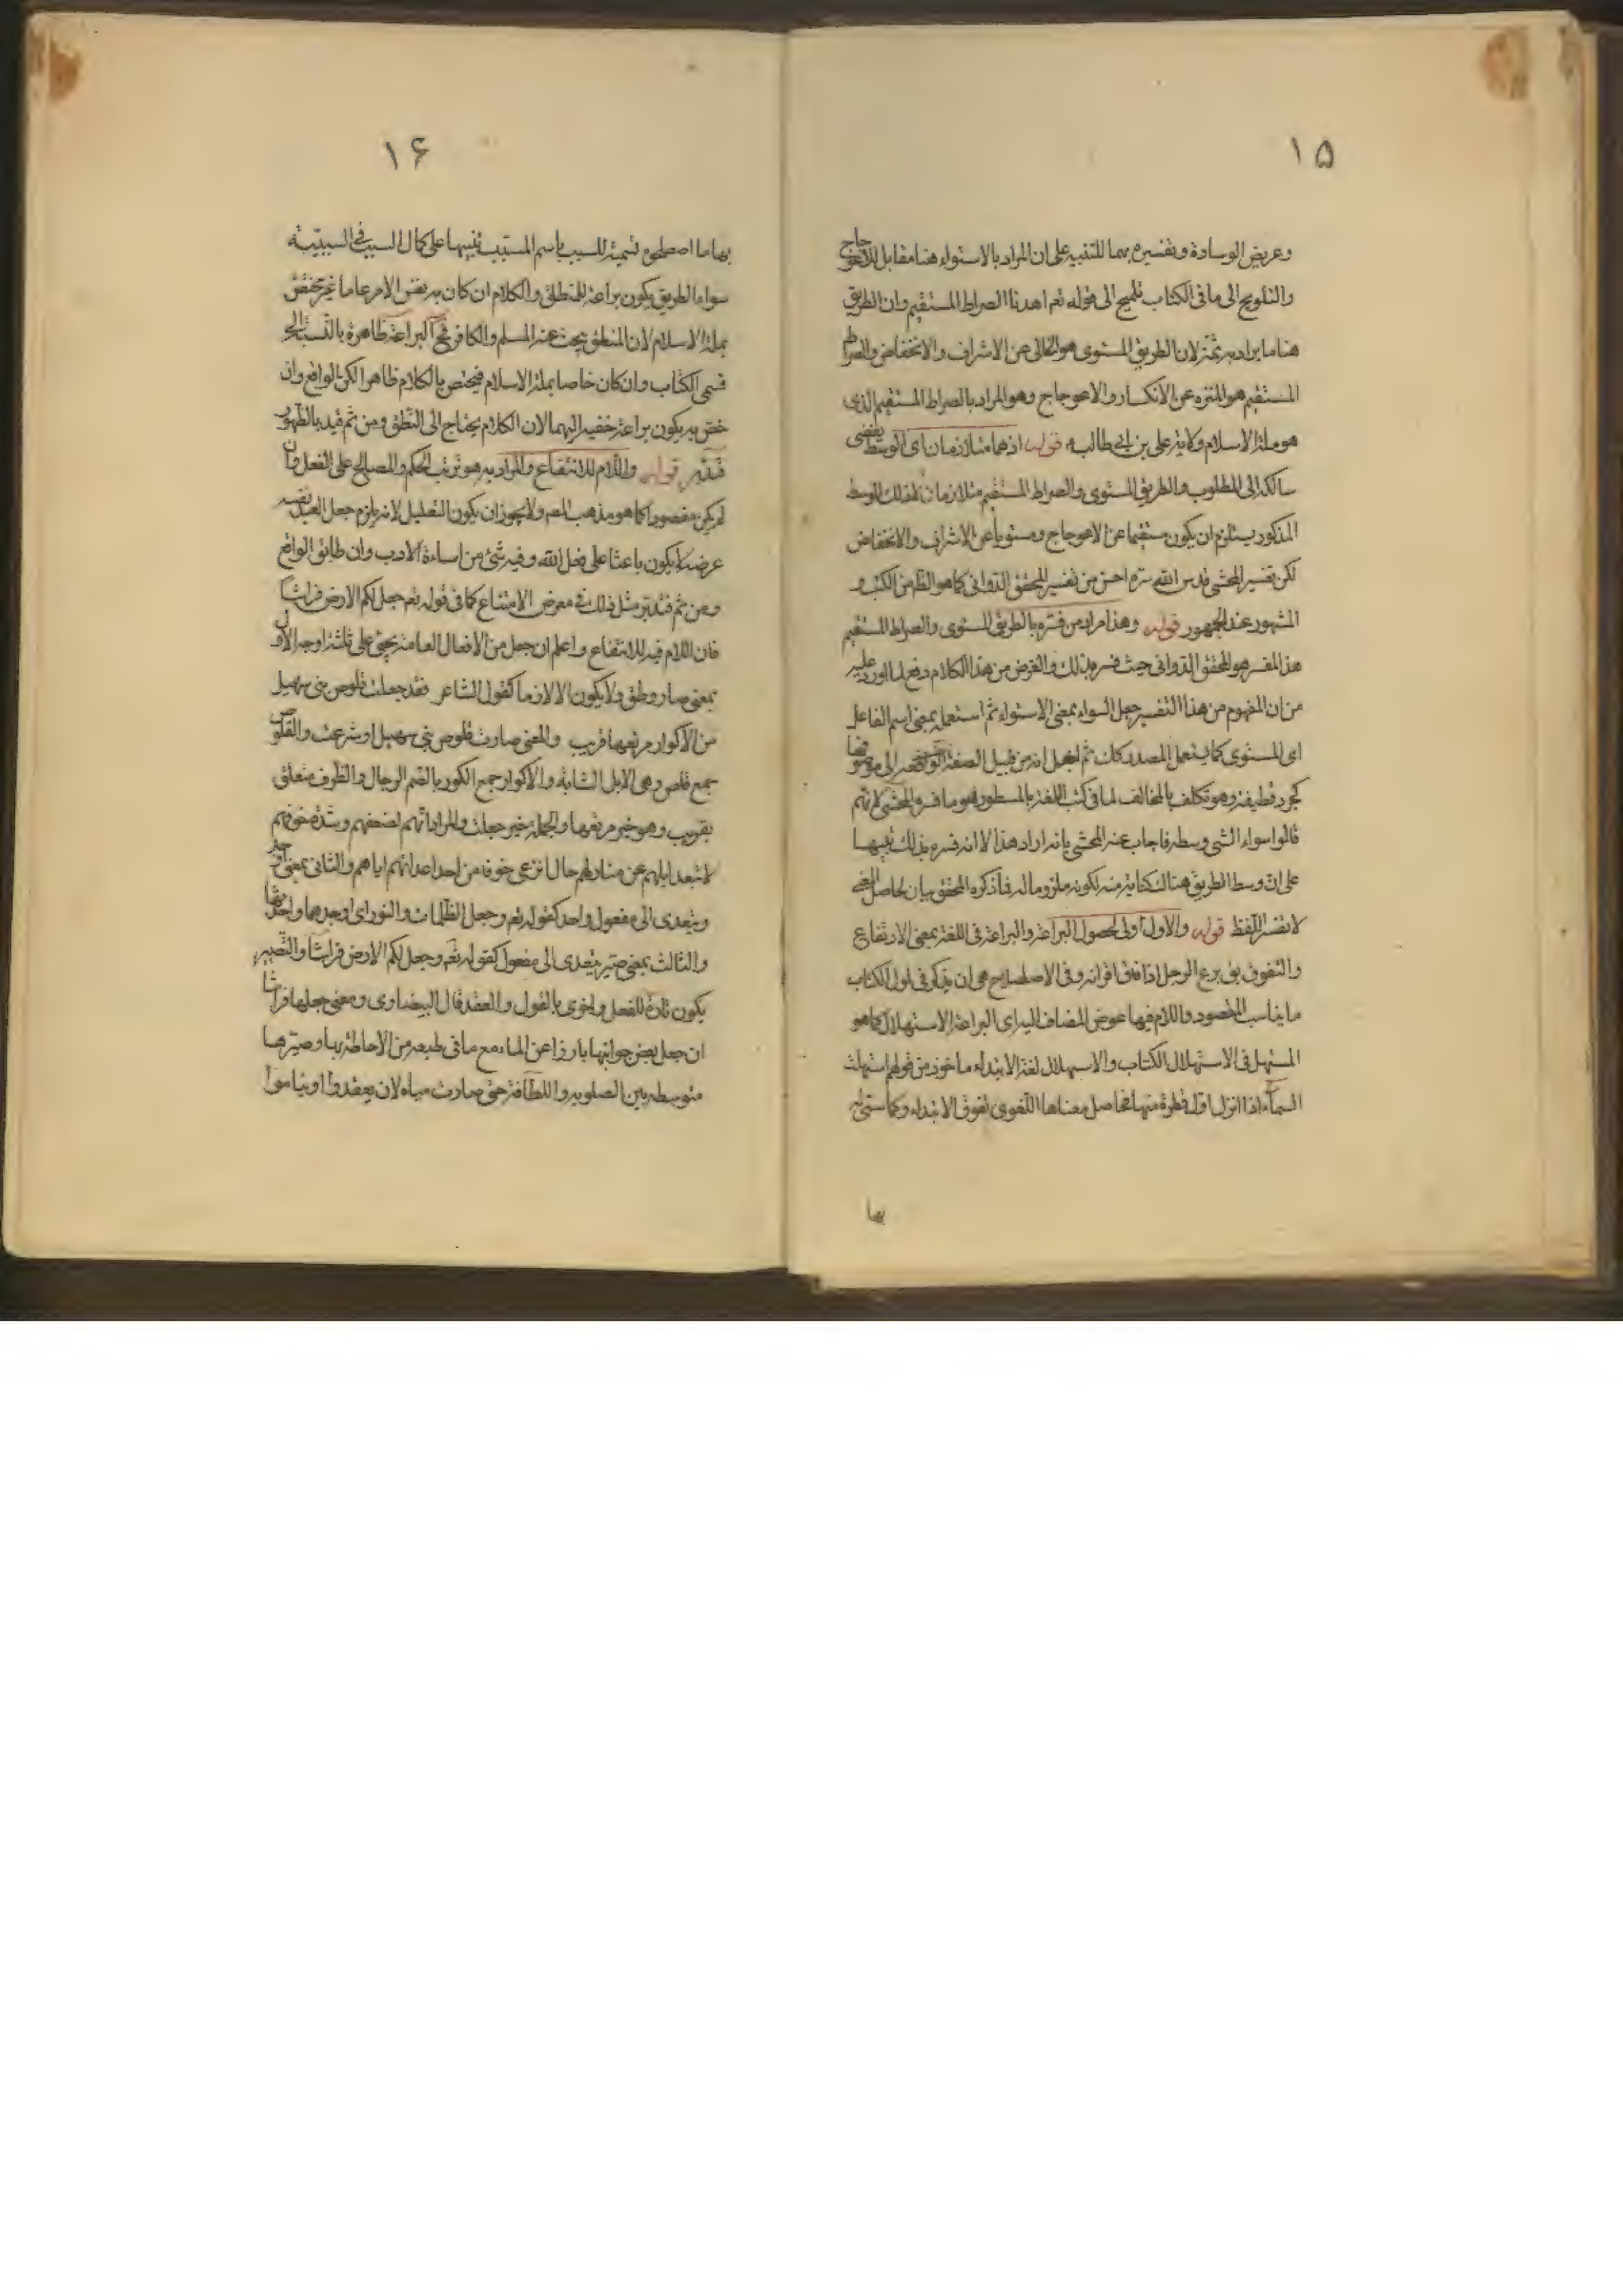 ١٥
وعريض الوسادة وتفسيره بهما للتنبيه على ان المراد بالاستواء هنا مقابل للاعوجاج
والتلويح الى ما فى الكتاب تلميح الى قوله تع اهدنا الصراط المستقيم وان الطريق
هنا ما يراد به ثمة لان الطريق المستوى هو الخالى عن الاشراف والانخفاض والصراط
المستقيم هو المنزه عن الانكسار والاعوجاج وهو المراد بالصراط المستقيم الذى
هو ملة الاسلام وولاية على بن ابى طالب قوله اذهما متلازمان اى الوسط يفضى
سالكه الى المطلوب والطريق المستوى والصراط المستقيم متلازمان لذلك الوسط
المذكور يستلزم ان يكون مستقيما عن الاعوجاج ومستويا عن الاشراف والانخفاض
لكن تفسير المحشى قدس الله سره احسن من تفسير المحقق الدوانى كما هو الظ من الكتب و
المشهور عند الجمهور قوله وهذا مراد من فسره بالطريق المستوى والصراط المستقيم
هذا المفسر هو المحقق الدوانى حيث فسر بذلك والغرض من هذا الكلام دفع لما اورد عليه
من ان المفهوم من هذا التفسير جعل السواء بمعنى الاستواء ثم استعمله بمعنى اسم الفاعل
اى المستوى كما يستعمل المصدر كك ثم لجعل انه من قبيل الصفة الى موصوفها
كجرد قطيفة وهو تكلف بالمخالف لما فى كتب اللغة بالمسطور هو ما فسره المحشى لانهم
قالوا سواء الشى وسطه فاجاب عنه المحشى بانه اراد هذا الا انه فسره بذلك تنبيها
على ان وسط الطريق هنا كناية منه لكونه ملزوما له فما ذكره المحقق بيان لحاصل المعنى
لا تفسر اللفظ قوله والاول اولى لحصول البراعة والبراعة فى اللغة بمعنى الارتفاع
والتفوق يق برع الرجل اذا فاق اقرانه وفى الاصطلاح هى ان يذكر فى اول الكتاب
ما يناسب المقصود واللام فيها عوض المضاف اليه اى البراعة الاستهلال كما هو
المستهل فى الاستهلال الكتاب والاستهلال لغة الابتداء ماخوذ من قولهم استهلت
السماء اذا انزل اول قطرة منها فحاصل معناها اللغوى تفوق الابتداء وكما ستى
بها
١۶
بها ما اصطلحوه تسمية للسبب باسم المسبب تنبيها على كمال السبب فى السببية
سواء الطريق يكون براعة للمنطق والكلام ان كان به نفس الامر عاما غير مختص
بملة الاسلام لان المنطق يبحث عنه المسلم والكافر فح البراعة ظاهرة بالنسبة الى
قسمى الكتاب وان كان خاصا بملة الاسلام فيختص بالكلام ظاهرا لكن بالواقع وان
خص به يكون براعة خفيه اليهما لان الكلام يحتاج الى النطق ومن ثم قيد بالظهور
فتدبر قوله واللام للانتفاع والمراد به هو ترتب الحكم والمصالح على الفعل وان
لم يكن مقصودا كما هو مذهب المص ولا يجوز ان يكون التعليل لانه يلزم جعل العبد نفسه
عرضه لا يكون باعثا على فعل الله وفيه شئ من اساءة الادب وان طابق الواقع
ومن ثم فتدبر مثل ذلك فى معرض الامتناع كما فى قوله تع جعل لكم الارض فراشا
فان اللام فيه للانتفاع واعلم ان جعل من الافعال العامة يجئ على ثلثة اوجه الاول
بمعنى صار وطفق ولا يكون الا لازما كقول الشاعر فقد جعلت قلوص بنى سهيل
من الاكوار مرتعها قريب والمعنى صارت قلوص بنى سهيل او شرعت والقلوص
جمع قلص وهى الابل الشابة والاكوار جمع الكور بالضم الرحال والظرف متعلق
بقريب وهو خبر مرتعها والجملة خبر جعلت والمراد انهم لضعفهم وشدة خوفهم
لا تبعد ابلهم عن منازلهم حال ترعى خوفا من احد اعدائهم اياهم والثانى بمعنى اوجد
ويتعدى الى مفعول واحد كقوله تع وجعل الظلمات والنور اى اوجدهما واحدثها
والثالث بمعنى صير يتعدى الى مفعول كقوله تع وجعل لكم الارض فراشا والتصيير
يكون تارة للفعل واخرى بالقول والعقد قال البيضاوى ومعنى جعلها فراشا
ان جعل بعض جوانبها بارزا عن الماء مع ما فى طبعه من الاحاطة بها وصيرها
متوسطه بين الصلوبه واللطافة حتى صارت مهيأة لان يقعدوا او يناموا